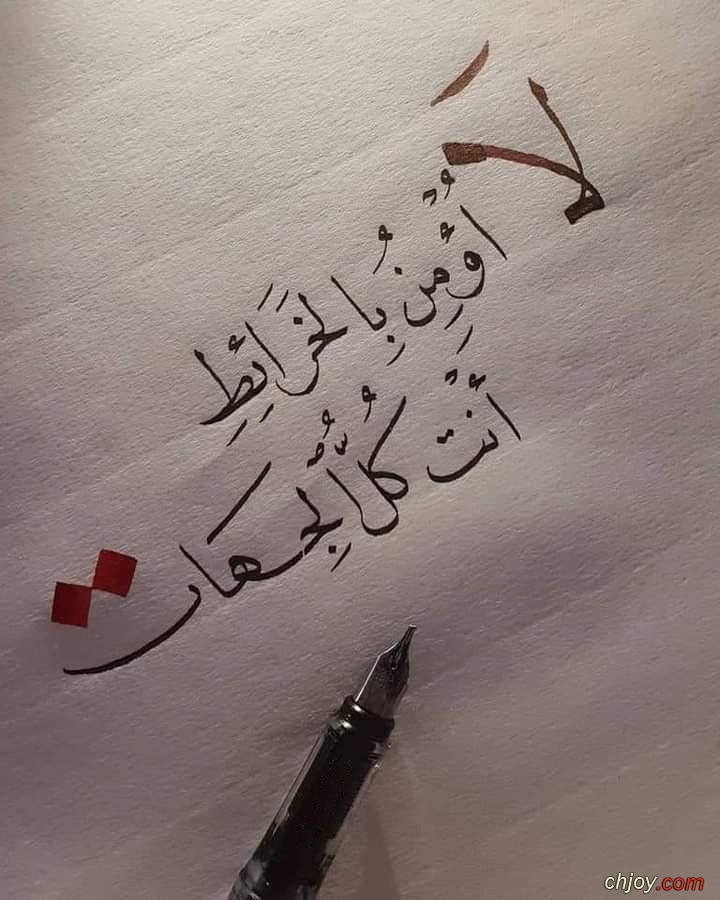 لَا
أُؤْمِنُ بِالخَرَائِطِ
أَنْتَ كُلُّ الجِهَات
chjoy.com